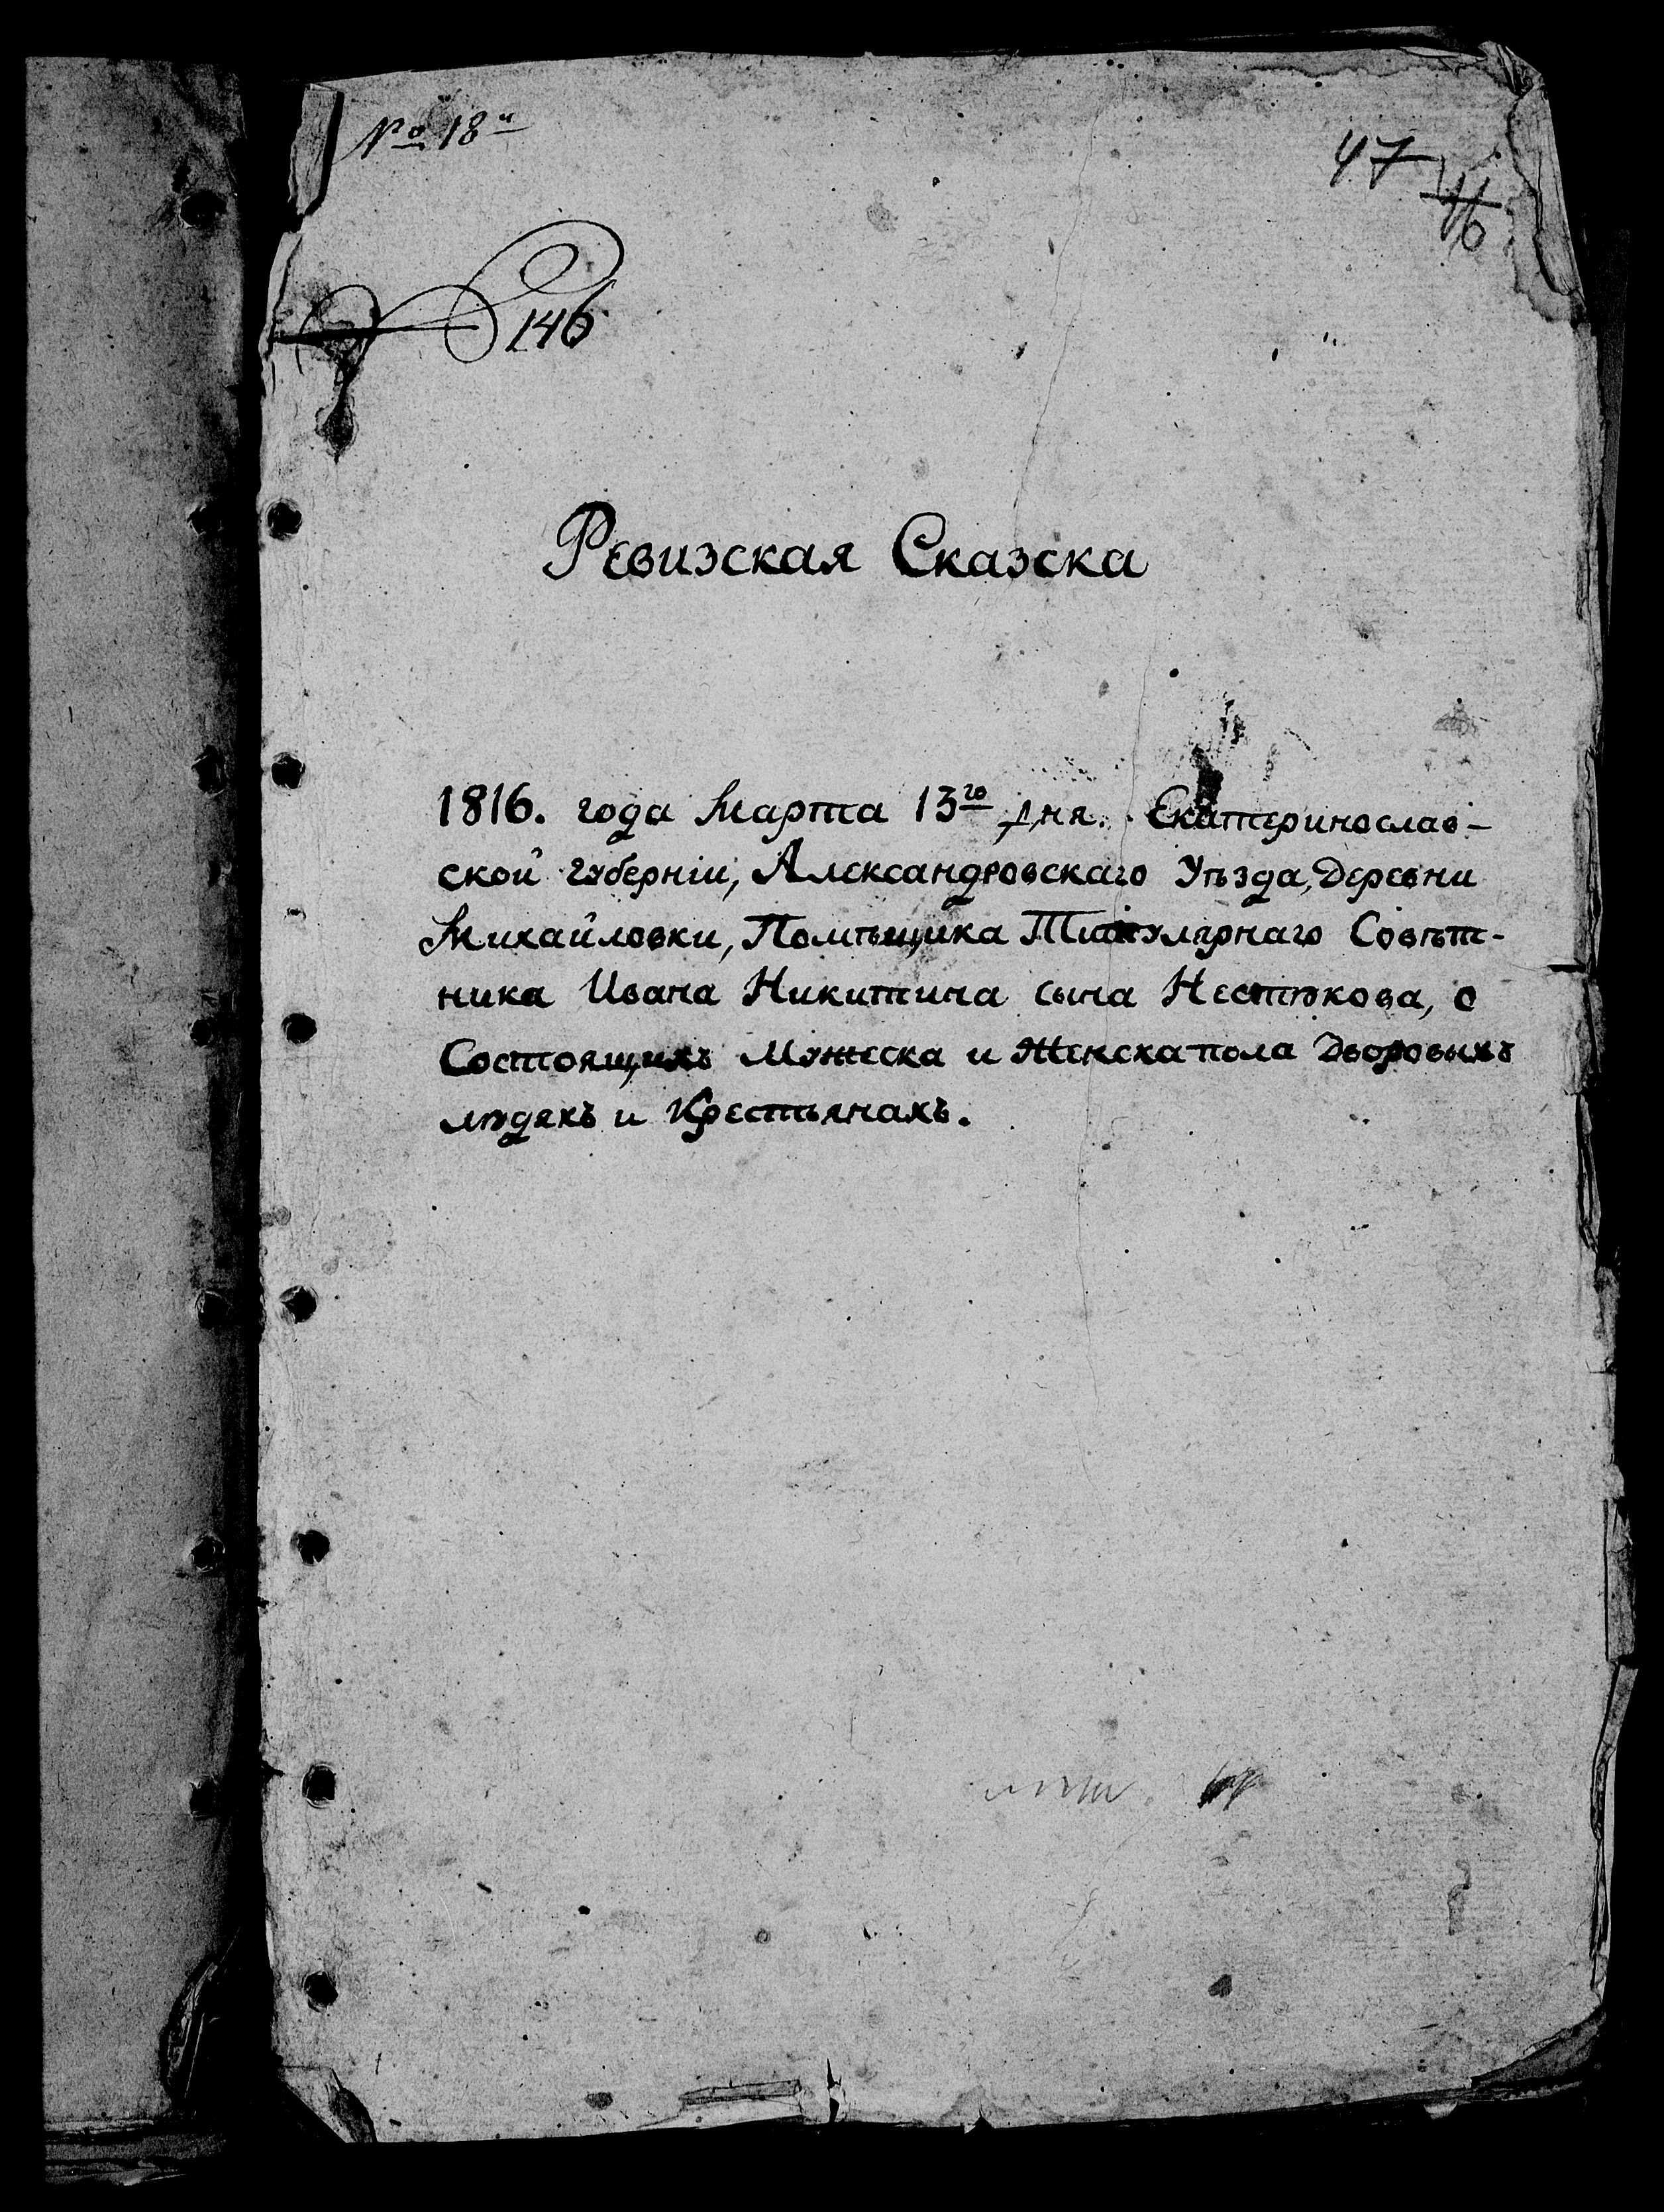 № 18й
47
46
146
Ревизская Сказска
1816. года Марта 13го дня. Екатеринослав-
ской губернiи, Александровскаго Уѣзда, Деревни
Михайловки, Помѣщика Титулярнаго Совѣт-
ника Ивана Никитина сына Нестюкова, о
Состоящихъ Мужеска и Женска пола Дворовыхъ
людяхъ и Крестьянахъ.